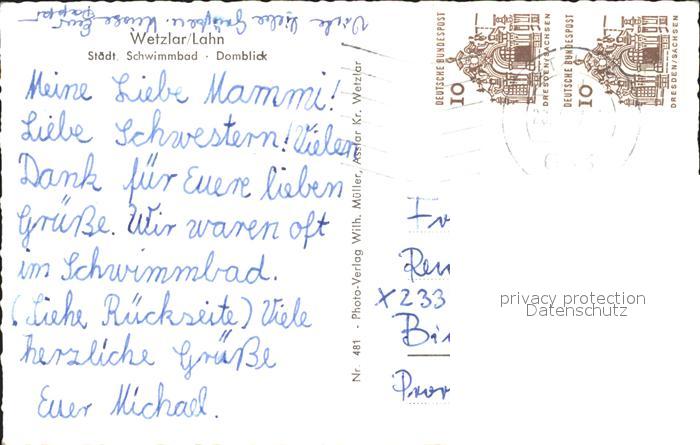 Viele liebe Grüße u. Küsse Euer
Pappi
Wetzlar/Lahn
Städt. Schwimmbad · Domblick
Meine Liebe Mammi!
Liebe Schwestern! Vielen
Dank für Euere lieben
Grüße. Wir waren oft
im Schwimmbad.
(Siehe Rückseite) Viele
herzliche Grüße
Euer Michael.
Nr. 481 · Photo-Verlag Wilh. Müller, Asslar Kr. Wetzlar
DEUTSCHE BUNDESPOST
10
DRESDEN/SACHSEN
DEUTSCHE BUNDESPOST
10
DRESDEN/SACHSEN
X 233
privacy protection
Datenschutz